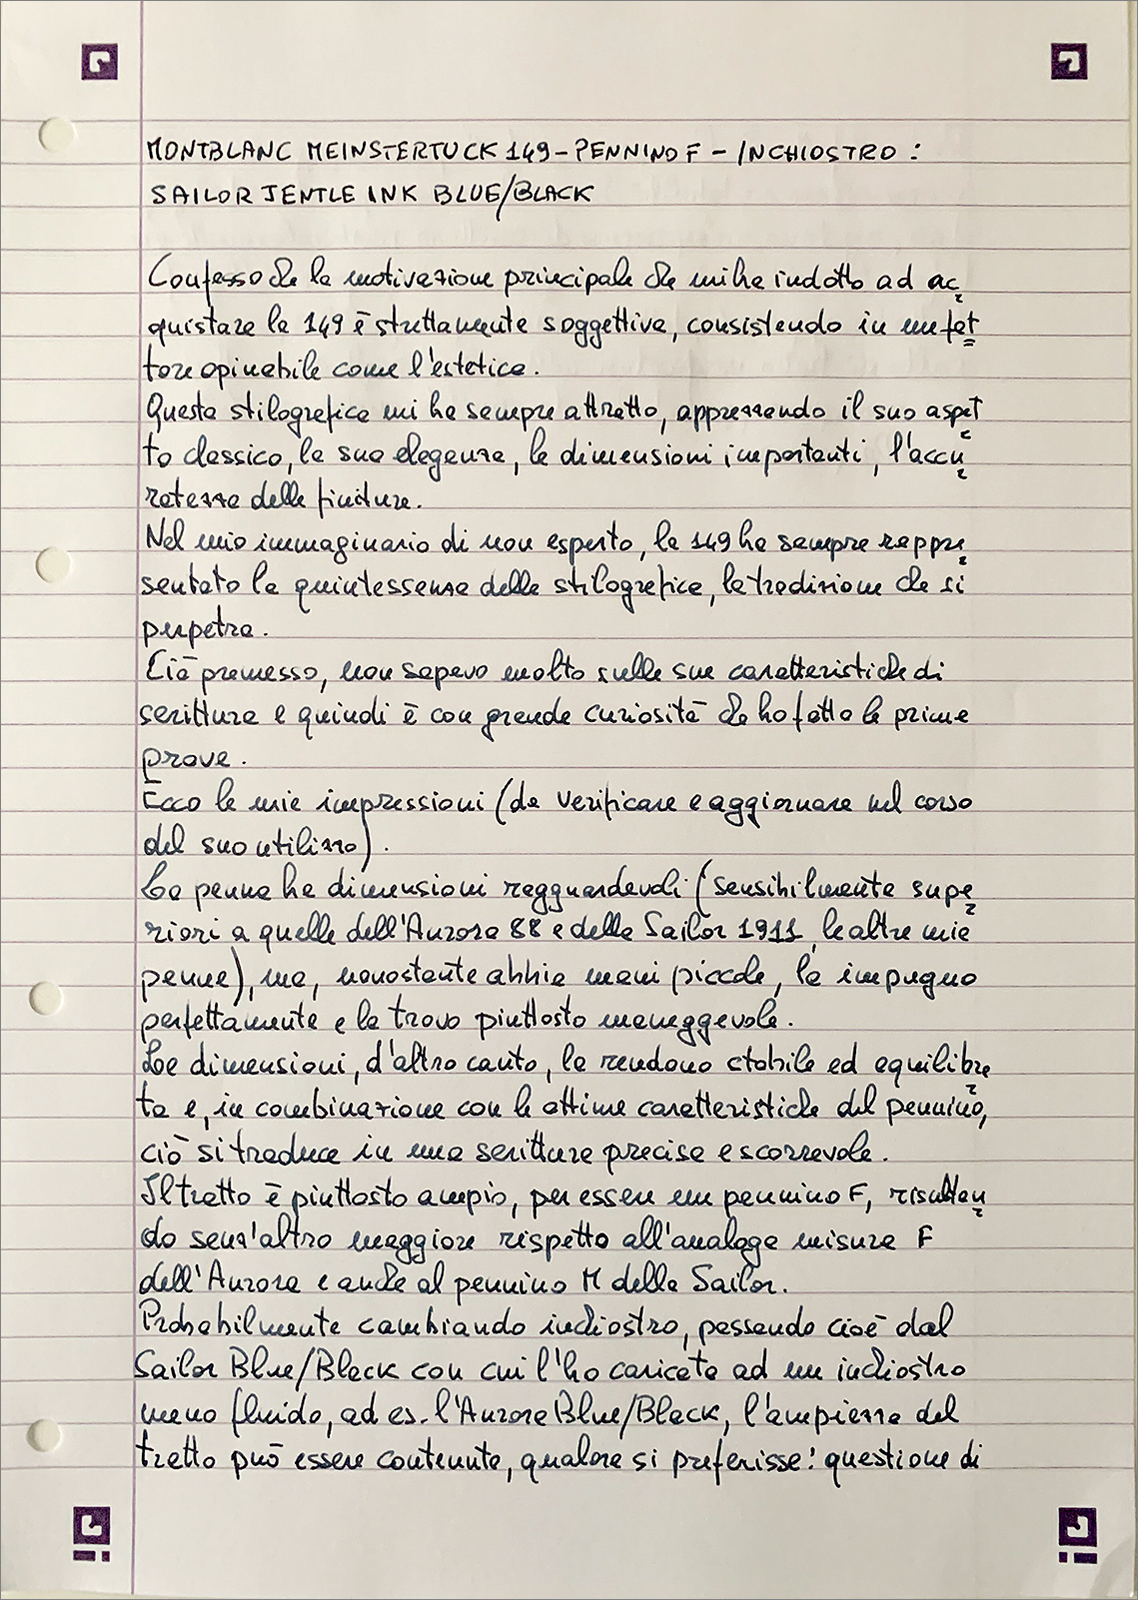 MONTBLANC MEINSTERTUCK 149 - PENNINO F - INCHIOSTRO :
SAILOR JENTLE INK BLUE/BLACK
Confesso che la motivazione principale che mi ha indotto ad ac
quistare la 149 è strettamente soggettiva, consistendo in un fat
tore opinabile come l'estetica.
Questa stilografica mi ha sempre attratto, apprezzando il suo aspet
to classico, la sua eleganza, le dimensioni importanti, l'accu
ratezza delle finiture.
Nel mio immaginario di non esperto, la 149 ha sempre rappre
sentato la quintessenza della stilografica, la tradizione che si
perpetra.
Ciò premesso, non sapevo molto sulle sue caratteristiche di
scrittura e quindi è con grande curiosità che ho fatto le prime
prove.
Ecco le mie impressioni (da verificare e aggiornare nel corso
del suo utilizzo).
La penna ha dimensioni ragguardevoli (sensibilmente supe
riori a quelle dell'Aurora 88 e della Sailor 1911, le altre mie
penne), ma, nonostante abbia mani piccole, la impugno
perfettamente e la trovo piuttosto maneggevole.
Le dimensioni, d'altro canto, la rendono stabile ed equilibra
ta e, in combinazione con le ottime caratteristiche del pennino,
ciò si traduce in una scrittura precisa e scorrevole.
Il tratto è piuttosto ampio, per essere un pennino F, risultan
do senz'altro maggiore rispetto all'analoga misura F
dell'Aurora e anche al pennino M della Sailor.
Probabilmente cambiando inchiostro, passando cioè dal
Sailor Blue/Black con cui l'ho caricata ad un inchiostro
meno fluido, ad es. l'Aurora Blue/Black, l'ampiezza del
tratto può essere contenuta, qualora si preferisse: questione di